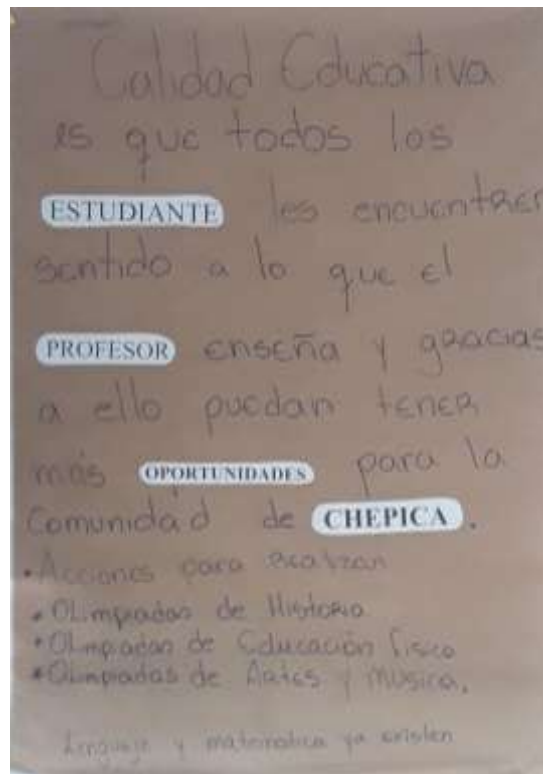 Calidad Educativa
es que todos los
ESTUDIANTE les encuentren
sentido a lo que el
PROFESOR enseña y gracias
a ello puedan tener
más OPORTUNIDADES para la
Comunidad de CHEPICA.
• Acciones para realizar
• Olimpiadas de Historia
• Olimpiadas de Educación Física
• Olimpiadas de Artes y musica.
Lenguaje y matematica ya existen